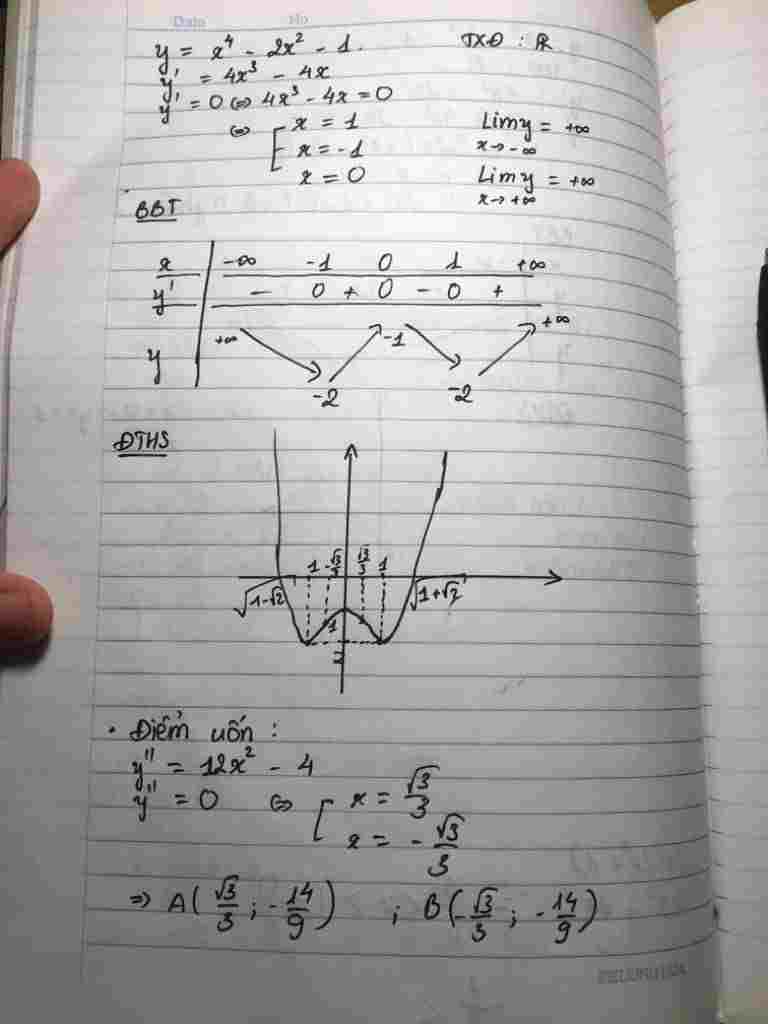 Date No
y = x⁴ - 2x² - 1. TXĐ : ℝ
y' = 4x³ - 4x
y' = 0 ⇔ 4x³ - 4x = 0
⇔ [ x = 1 Lim y = +∞
x = -1 x → -∞
x = 0 Lim y = +∞
x → +∞
BBT
x -∞ -1 0 1 +∞
y' - 0 + 0 - 0 +
y +∞ -2 -1 -2 +∞
ĐTHS
1 -√3/3 √3/3 1
√1-√2 √1+√2
1
2
• Điểm uốn :
y'' = 12x² - 4
y'' = 0 ⇔ [ x = √3/3
x = -√3/3
=> A(√3/3 ; -14/9) ; B(-√3/3 ; -14/9)